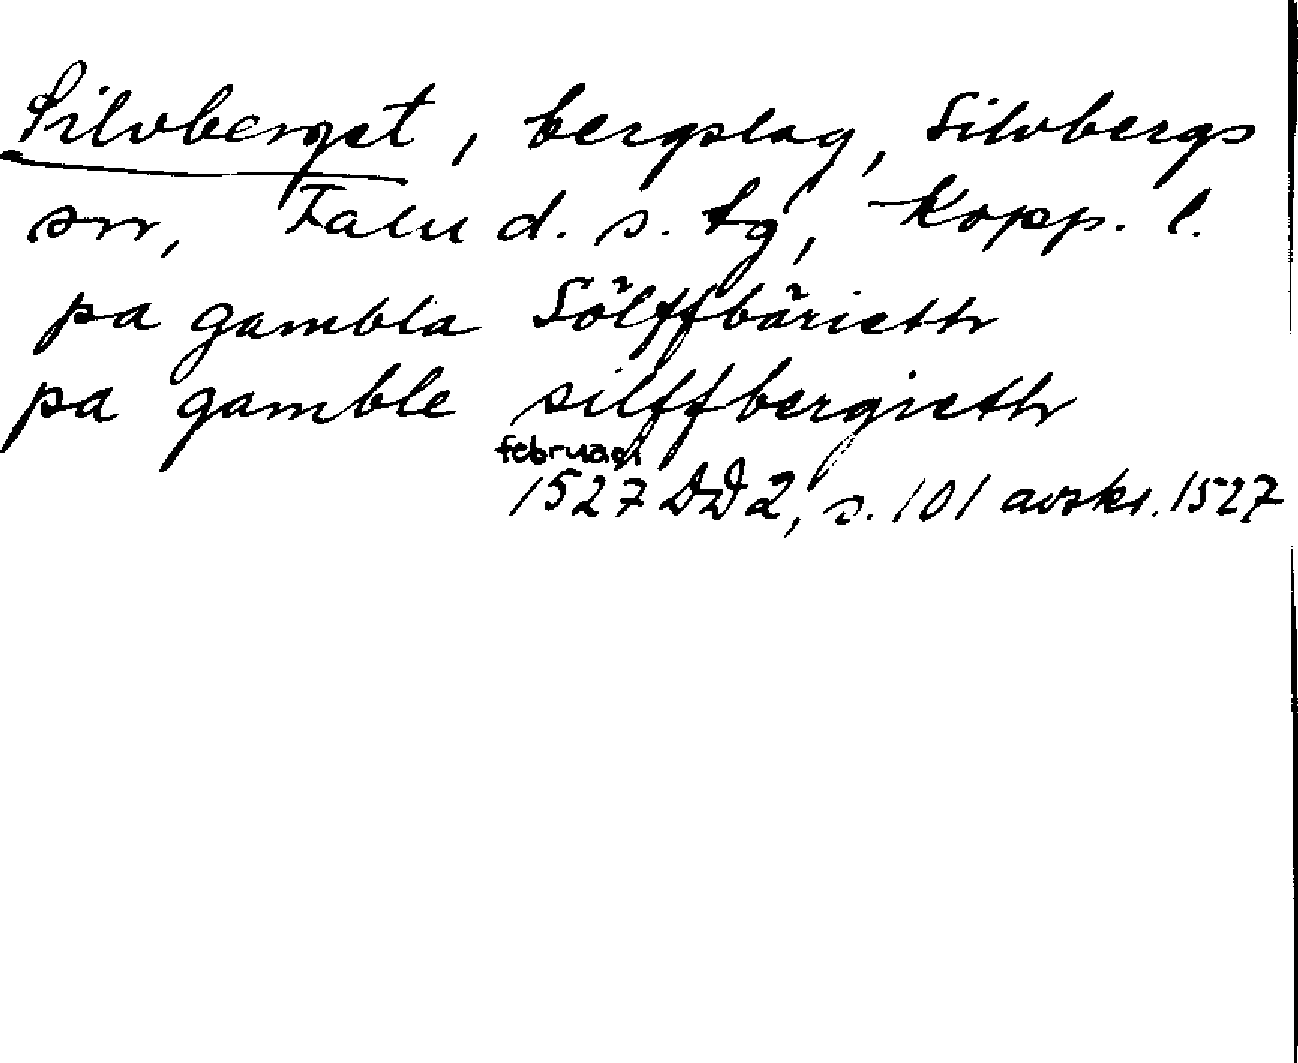 Silvberget, bergslag, Silvbergs
sn, Falu d. s. tg, Kopp. l.
pa gambla Sölffbärietth
pa gamble silffbergietth
februari
1527 DD2, s. 101 avskr. 1527